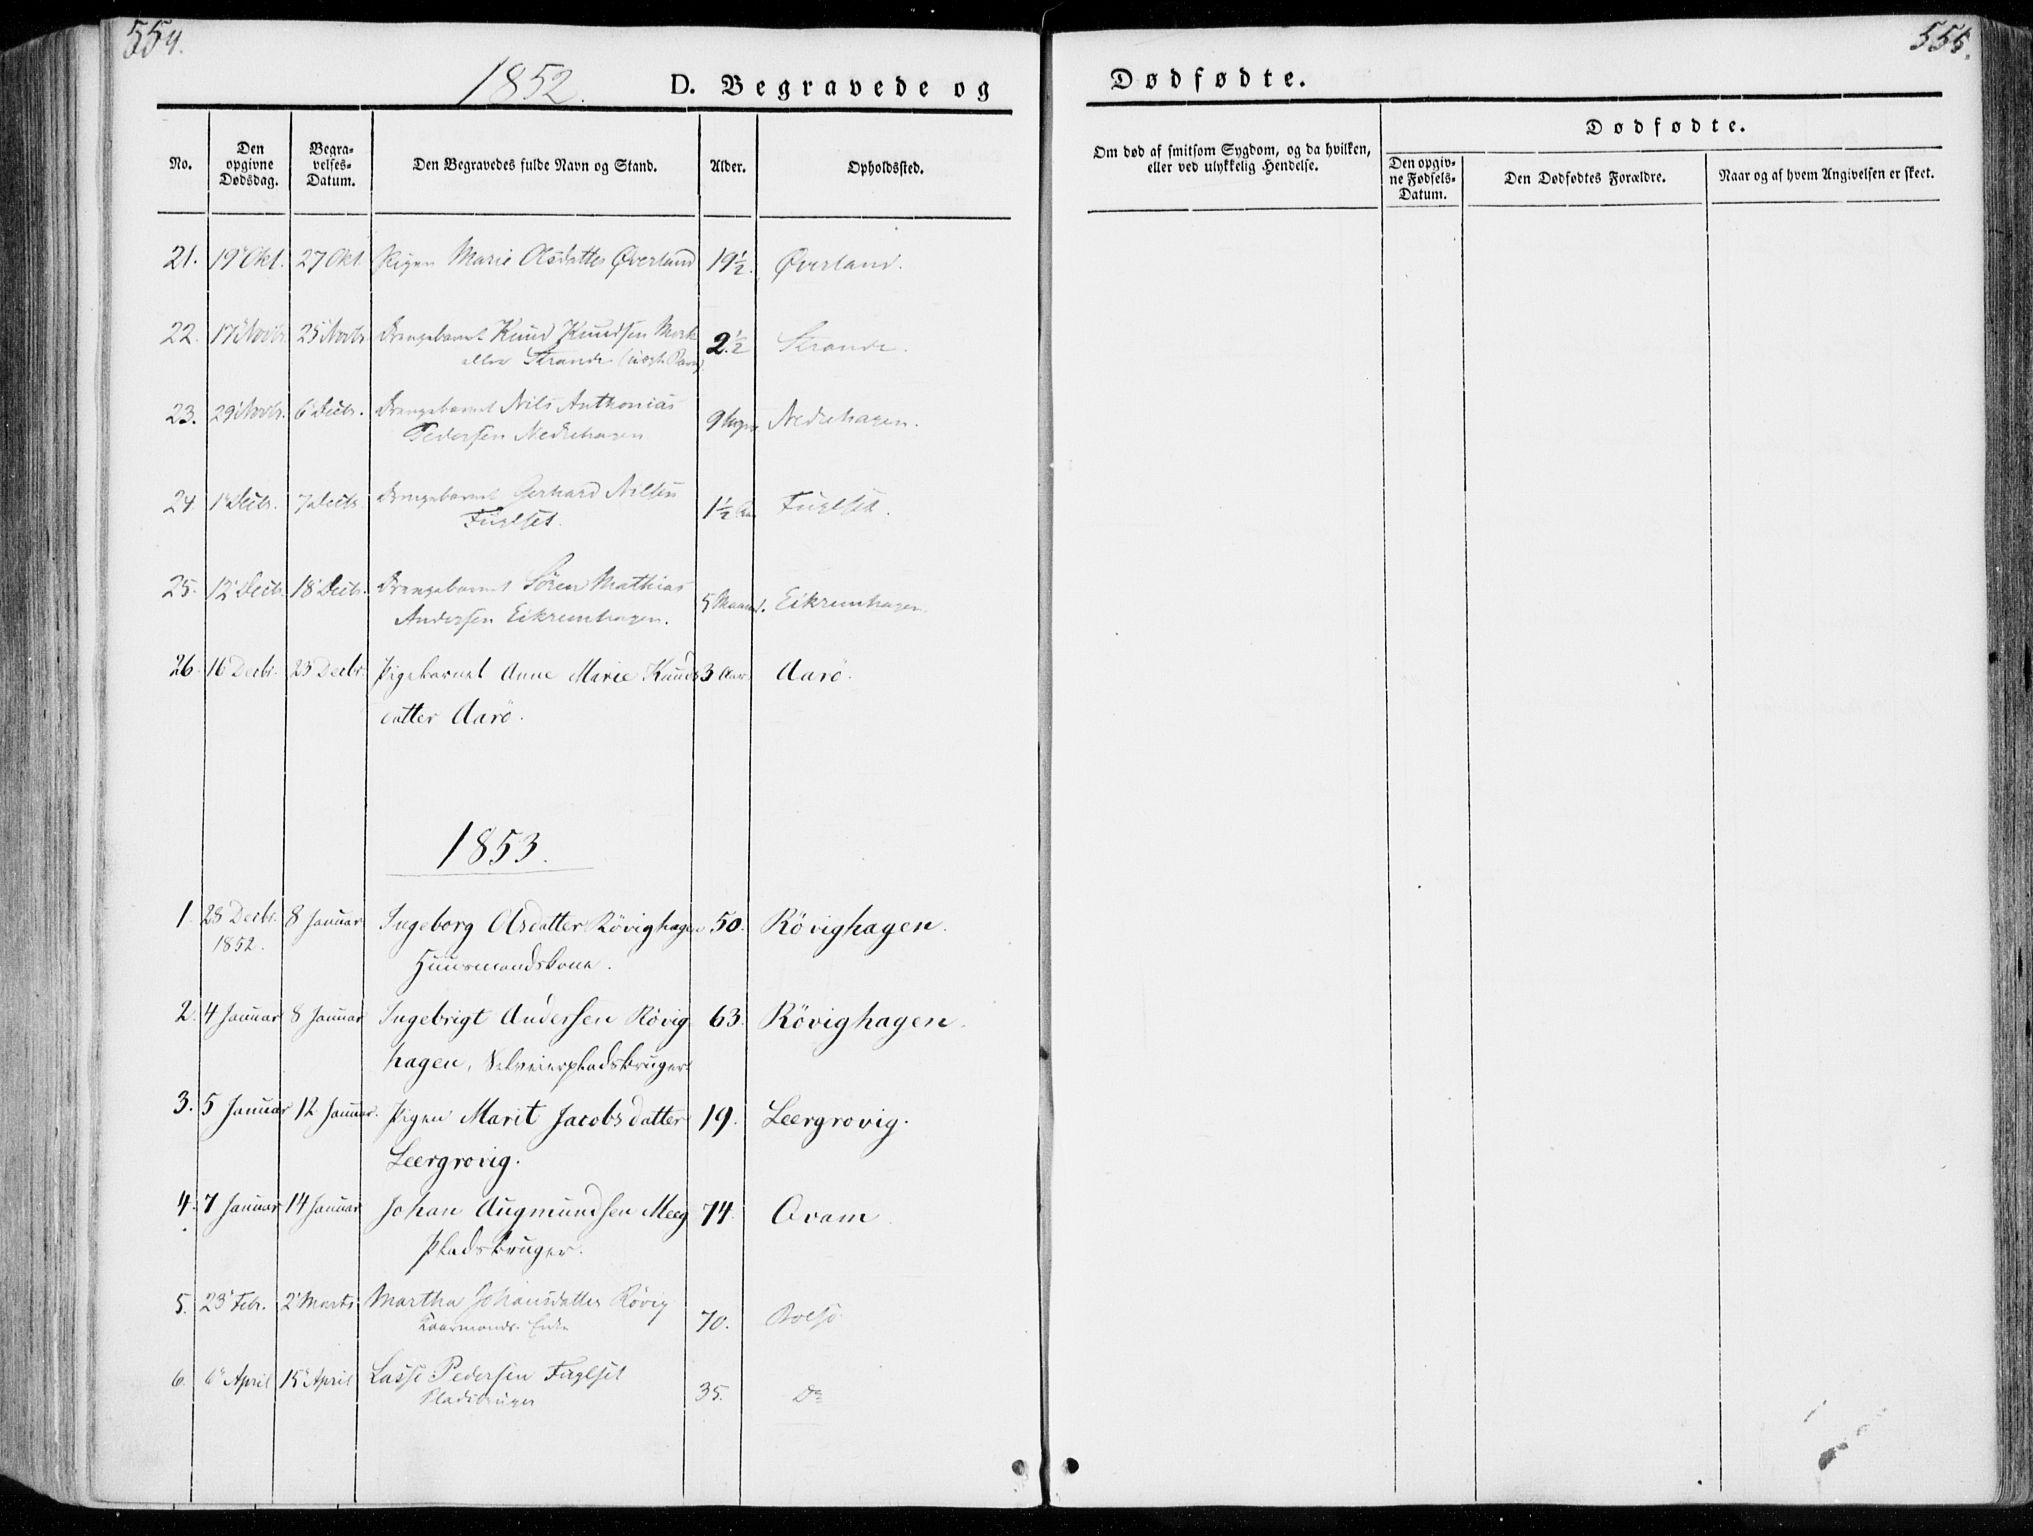 554.
555.
1852.
D. Begravede og
Dødfødte.
No.
Den opgivne Dødsdag.
Begravelses-Datum.
Den Begravedes fulde Navn og Stand.
Alder.
Opholdssted.
Om død af smitsom Sygdom, og da hvilken, eller ved ulykkelig Hendelse.
Dødfødte.
Den opgivne Fødsels-Datum.
Den Dødfødtes Forældre.
Naar og af hvem Angivelsen er skeet.
21. 19 Okt. 27 Okt. Pigen Marie Olsdatter Øverland 19½. Øverland.
22. 17 Novbr. 25 Novbr. Drengebarnet Knud Knudsen Mork 2½ Strande.
eller Strande
23. 29 Novbr. 6 Decbr. Drengebarnet Nils Anthonias 9 Nedrehagen.
Pedersen Nedrehagen
24. 1 Decbr. 7 Decbr. Drengebarnet Gerhard Nilsen 1½ Fuglset.
Fuglset.
25. 12 Decbr. 18 Decbr. Drengebarnet Sören Mathias 5 Maaned. Eikremhagen.
Andersen Eikremhagen.
26. 16 Decbr. 23 Decbr. Pigebarnet Anne Marie Knuds 3 Aar. Aarö.
datter Aarö.
1853.
1. 28 Decbr. 8 Januar Ingeborg Olsdatter Rövighagen 50. Rövighagen.
1852. Huusmandskone.
2. 4 Januar 8 Januar Ingebrigt Andersen Rövig 63. Rövighagen.
hagen, Selveierpladsbruger
3. 5 Januar 12 Januar. Pigen Marit Jacobsdatter 19. Leergrovig.
Leergrovig.
4. 7 Januar 14 Januar Johan Augmundsen Meeg 74. Qvam
Pladsbruger.
5. 23 Febr. 2 Marts Martha Johansdatter Rövig 70. Bolsö
Enke
6. 6 April 15 April Lasse Pedersen Fuglset 35. Do
Pladsbruger